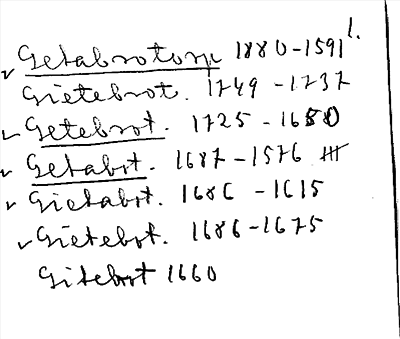 Getabrotorp 1880-1591 1.
Gietebrot. 1749 - 1737
Getebrot. 1725 - 1680
Getabrt. 1687 - 1576
Gietabrt. 1686 - 1615
Gietebrt. 1686 - 1675
Gitebrt 1660